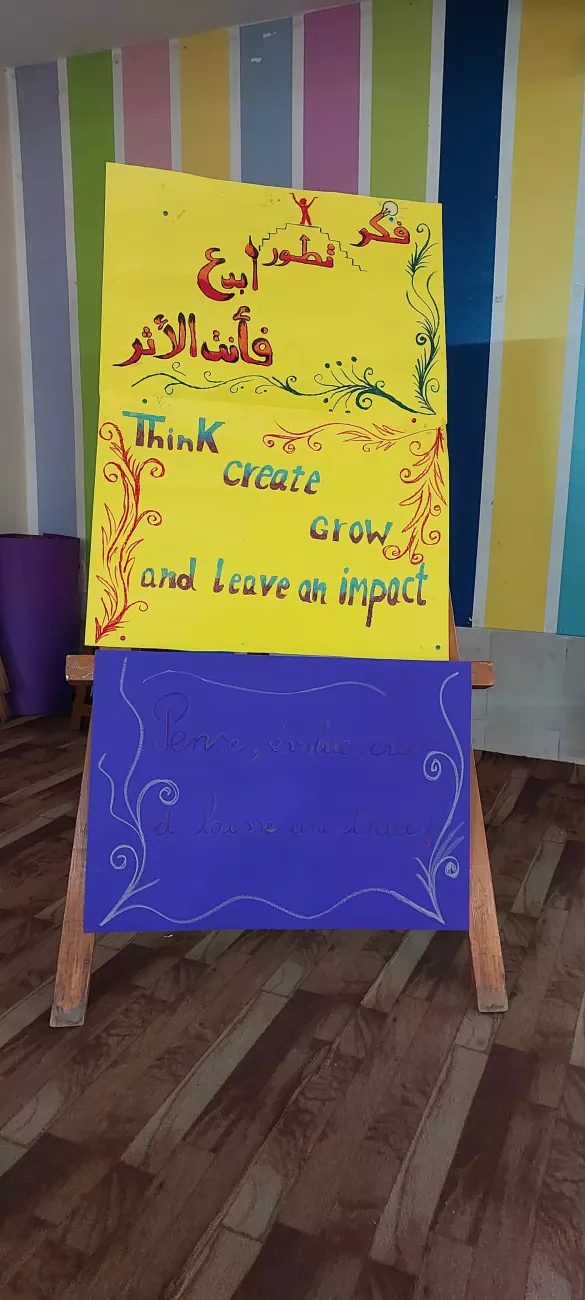 فكر
تطور
ابدع
فأنت الأثر
Think
create
Grow
and Leave an impact
Pense, évolue, crée
et laisse une trace!